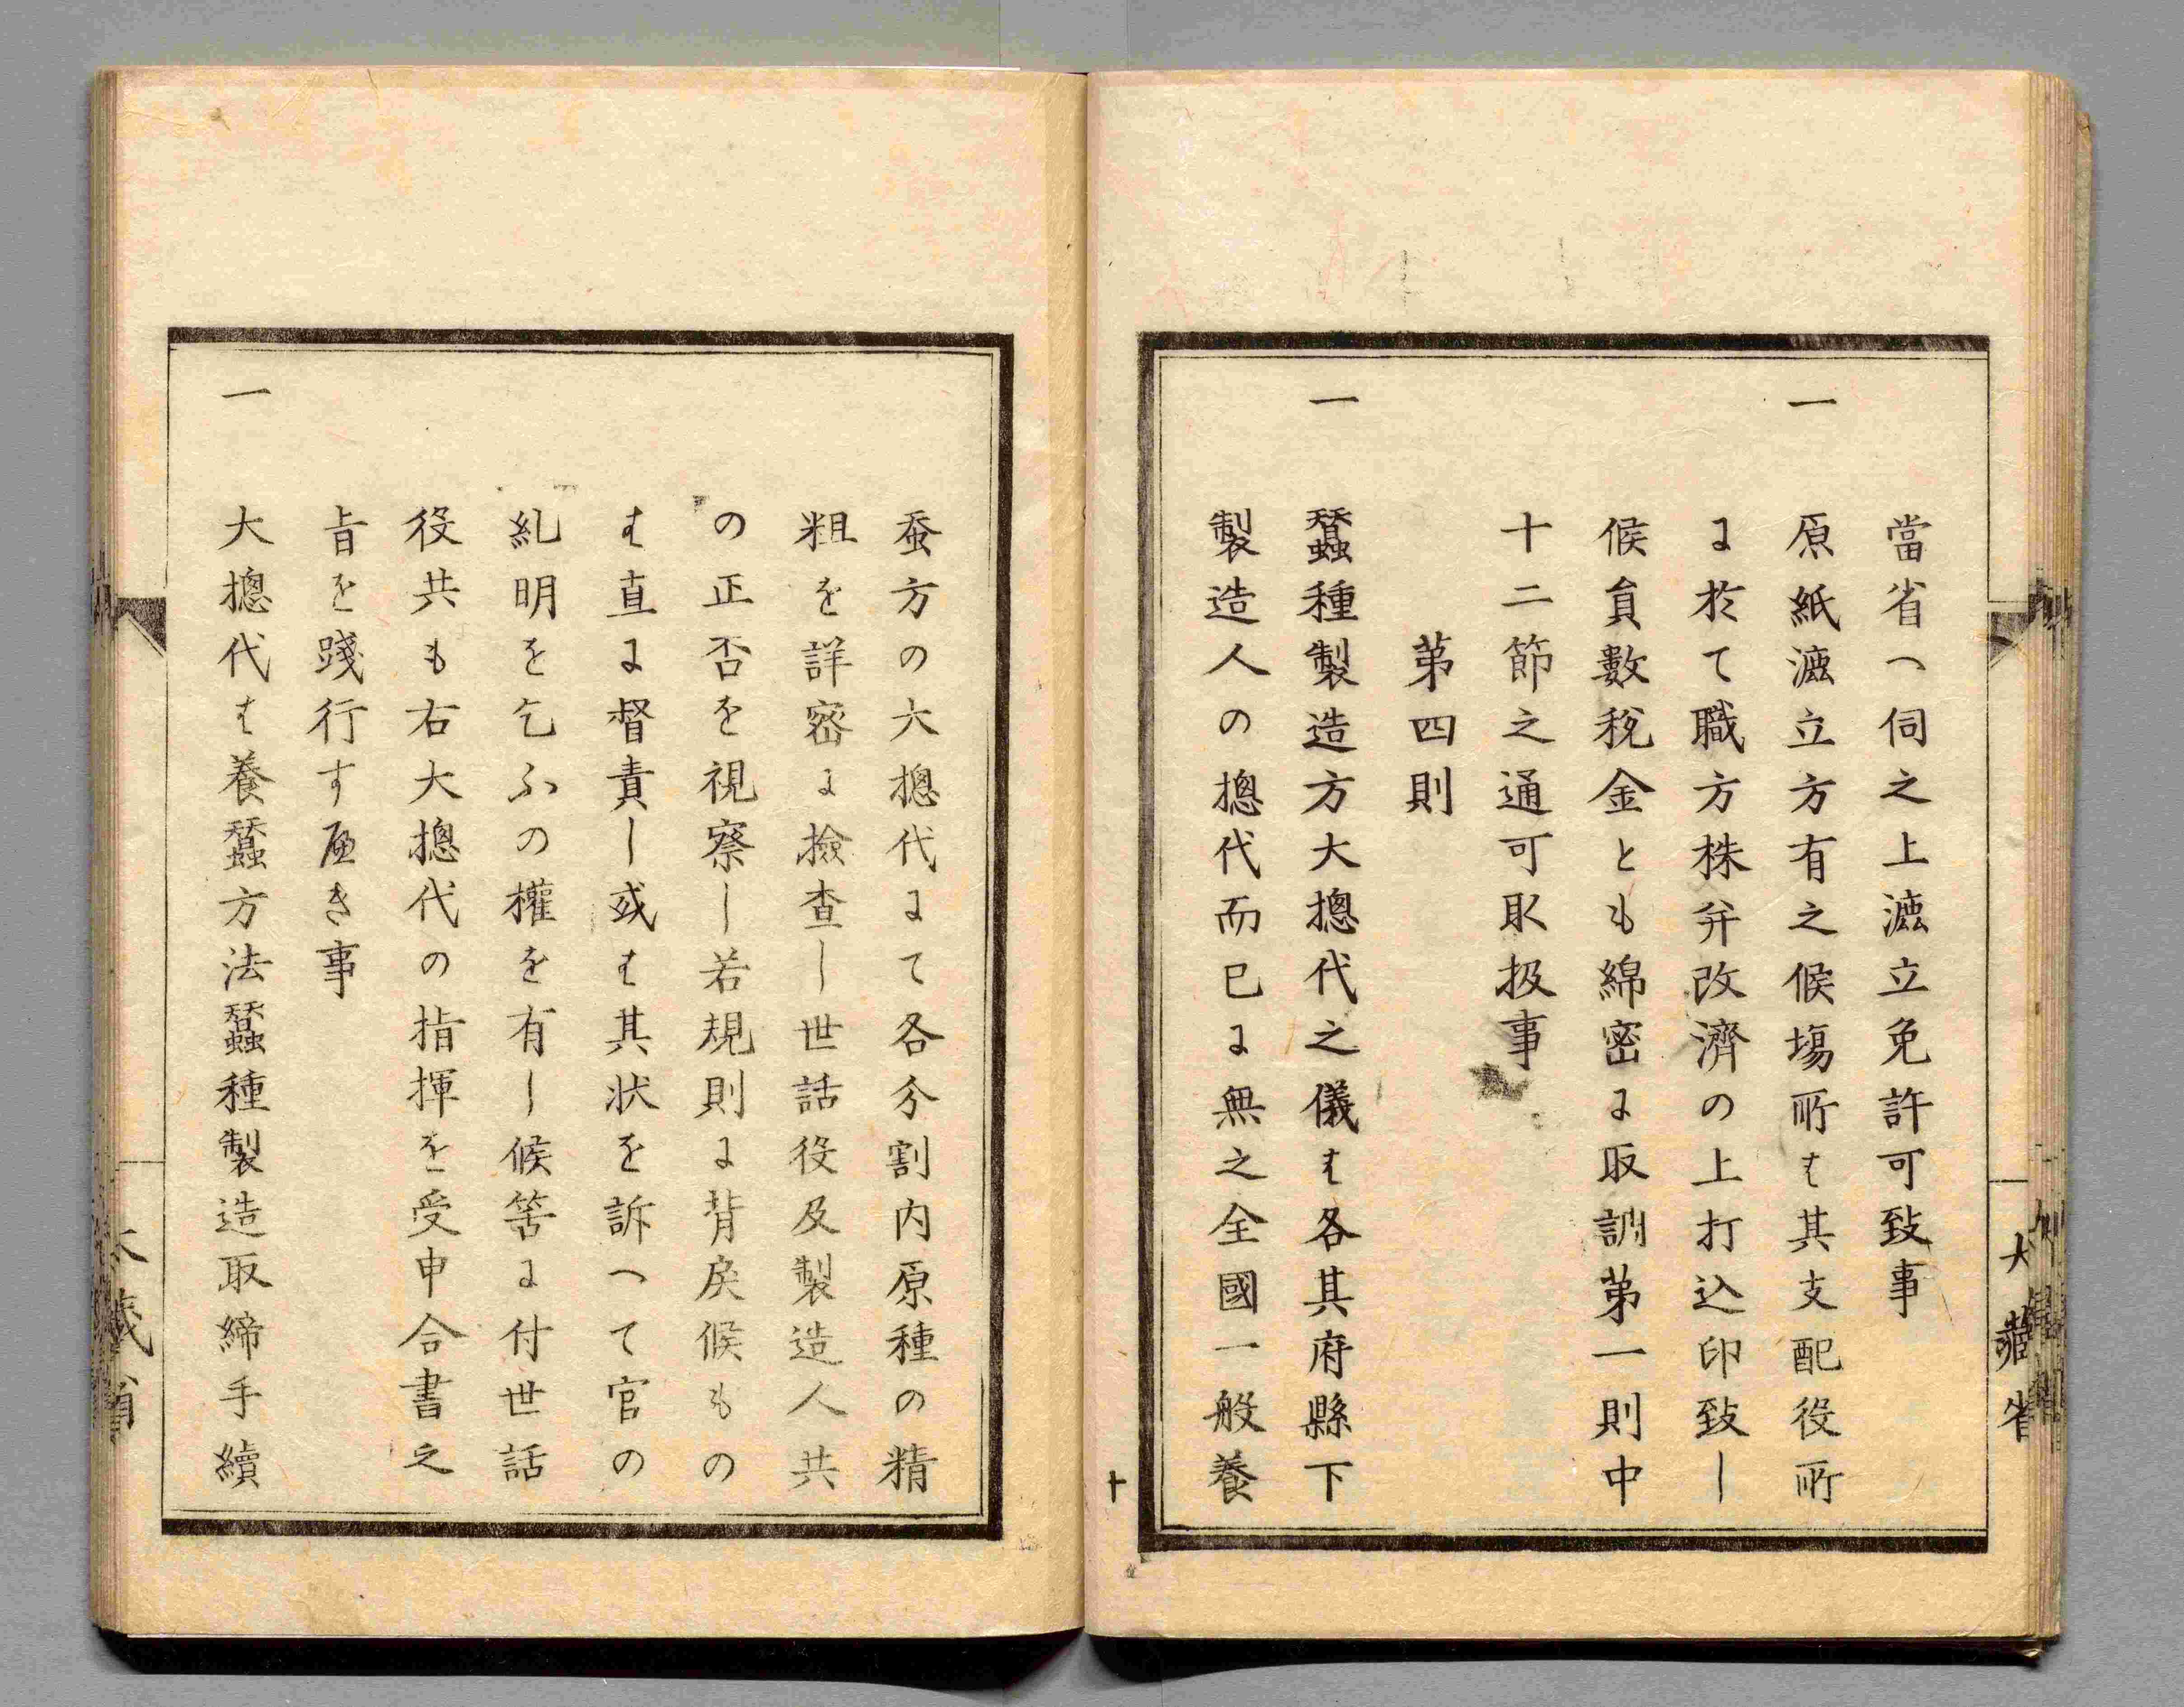 當省へ伺之上漉立免許可致事
一 原紙漉立方有之候塲所は其支配役所
に於て職方株弁改濟の上打込印致し
候員數税金とも綿密に取調第一則中
十二節之通可取扱事
第四則
一 蠶種製造方大摠代之儀は各其府縣下
製造人の摠代而已に無之全國一般養
蚕方の大摠代にて各分割内原種の精
粗を詳密に撿查し世話役及製造人共
の正否を視察し若規則に背戻候もの
は直に督責し或は其状を訴へて官の
糺明を乞ふの權を有し候筈に付世話
役共も右大摠代の指揮を受申合書之
旨を踐行すべき事
一 大摠代は養蠶方法蠶種製造取締手續
大藏省
十